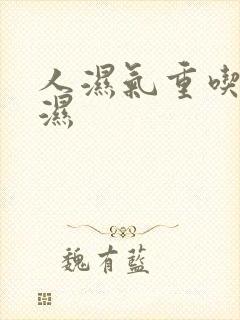 人濕氣重喫
濕
魏有藍